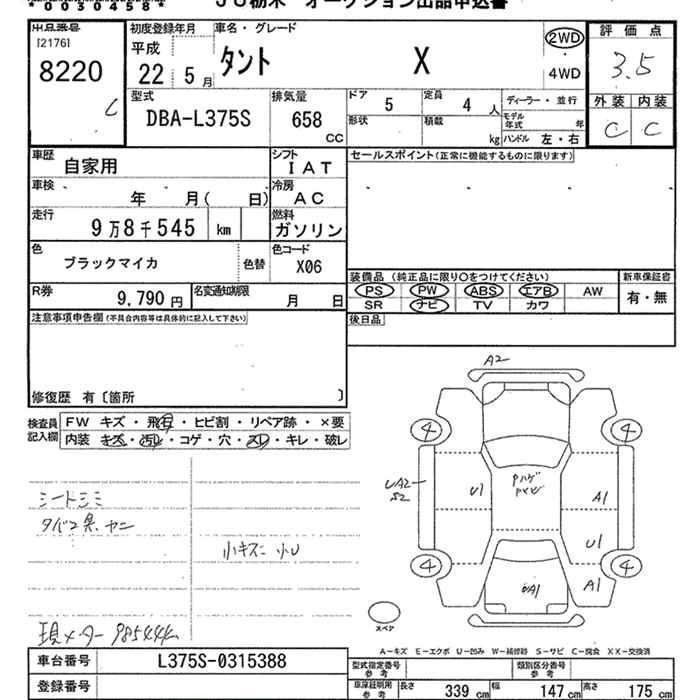 *0050458*
JU栃木 オークション出品申込書
出品番号
[2176]
8220
初度登録年月
平成
22 5月
車名・グレード
タント X
2WD
・
4WD
評価点
3.5
外装 内装
C C
型式
DBA-L375S
排気量
658
CC
ドア
5
定員
4 人
形状
積載
kg
ディーラー・並行
モデル年式 年
ハンドル 左・右
車歴
自家用
シフト
IAT
セールスポイント(正常に機能するものに限ります)
車検
年 月( 日)
冷房
AC
走行
9万8千545 km
燃料
ガソリン
色
ブラックマイカ
色替
色コード
X06
装備品 (純正品に限り○をつけてください)
PS PW ABS エアB AW
SR ナビ TV カワ
新車保証書
有・無
R券
9,790 円
名変通知期限
月 日
後日品
注意事項申告欄(不具合内容等は具体的に記入して下さい)
修復歴 有〔箇所 〕
検査員記入欄
FW キズ・飛石・ヒビ割・リペア跡・×要
内装 キズ・汚レ・コゲ・穴・スレ・キレ・破レ
シートシミ
タバコ臭 ヤニ
小キズ 小U
現メーター 98544km
A2
4
4
UA2
S2
U1
A1
U1
A1
4
4
スペア
A-キズ E-エクボ U-凹み W-補修跡 S-サビ C-腐食 XX-交換済
車台番号
L375S-0315388
登録番号
型式指定番号
参考
類別区分番号
参考
車庫証明用
参考
長さ 339 cm 幅 147 cm 高さ 175 cm